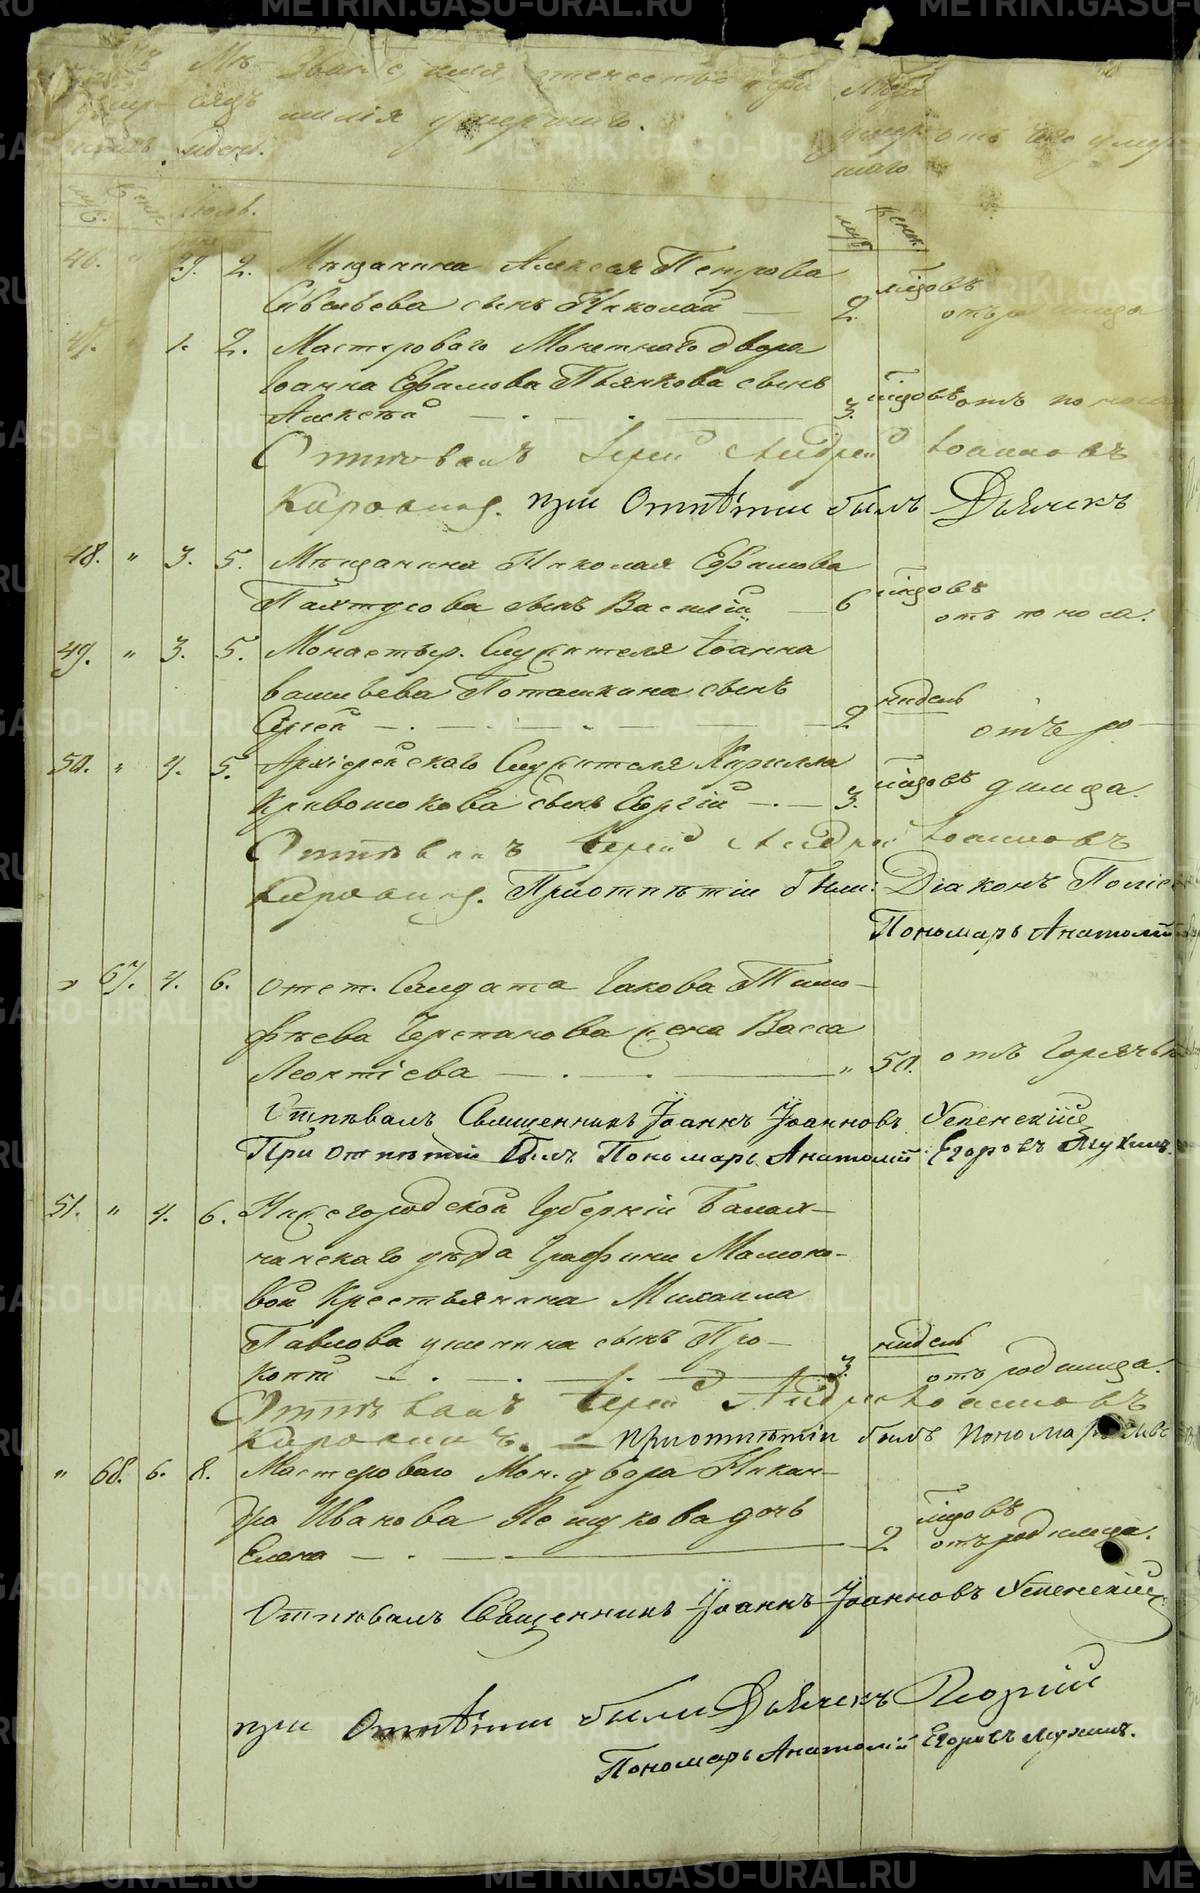 Мѣ- Званіе, имя, отечество и фа- Лѣта
умер- сяцъ милія умершихъ. умер- отъ чего умер
день. шаго
муж. женс. Іюль. муж. женс.
46. " 29. 2. Мѣщанина Алексея Петрова
Савельева сынъ Николай — 2. годовъ отъ родимца
47. 1. 2. Мастероваго Монетнаго двора
Іоанна Ефимова Пьянкова сынъ
Алексѣй — . — . 3. годовъ отъ поноса
Отпѣвалъ Іерей Андрей Іоанновъ
при Отпѣтіи былъ Дьячекъ
48. " 3. 5. Мѣщанина Николая Ефимова
Пахтусова сынъ Василій — 6 годовъ отъ поноса.
49. " 3. 5. Монастыр. Служителя Іоанна
Васильева Поташкина сынъ
Сергей — . — . — 2 нидель отъ ро-
50. " 4. 5. Архіерейскаго Служителя Кирилла
Кривошокова сынъ Георгій — . — 3. годовъ димца.
Отпѣвалъ Іерей Андрей Іоанновъ
При отпѣтіи были: Діаконъ
Пономарь Анатолій
" 67. 4. 6. Отст. Салдата Іакова Тимо-
фѣева Черепанова жена Васса
Леонтіева — . — " 50. отъ Горячки
Отпѣвалъ Священникъ Іоаннъ Іоанновъ Успенскій
При Отпѣтіи былъ Пономарь Анатолій Егоровъ
51. " 4. 6. Нижегородской Губерніи Балах-
нинскаго уѣзда Графини
Крестьянина Михаила
Павлова сынъ Про-
копій — . — . — 3. нидель отъ родимца.
Отпѣвалъ Іерей Андрей Іоанновъ
при отпѣтіи былъ Пономарь
" 68. 6. 8. Мастероваго Мон. двора Никан-
дра Иванова дочь
Елена — . — 2 годовъ отъ родимца.
Отпѣвалъ Священникъ Іоаннъ Іоанновъ Успенскій
при Отпѣтіи были Дьячекъ Георгій
Пономарь Анатолій Егоровъ
METRIKI.GASO-URAL.RU